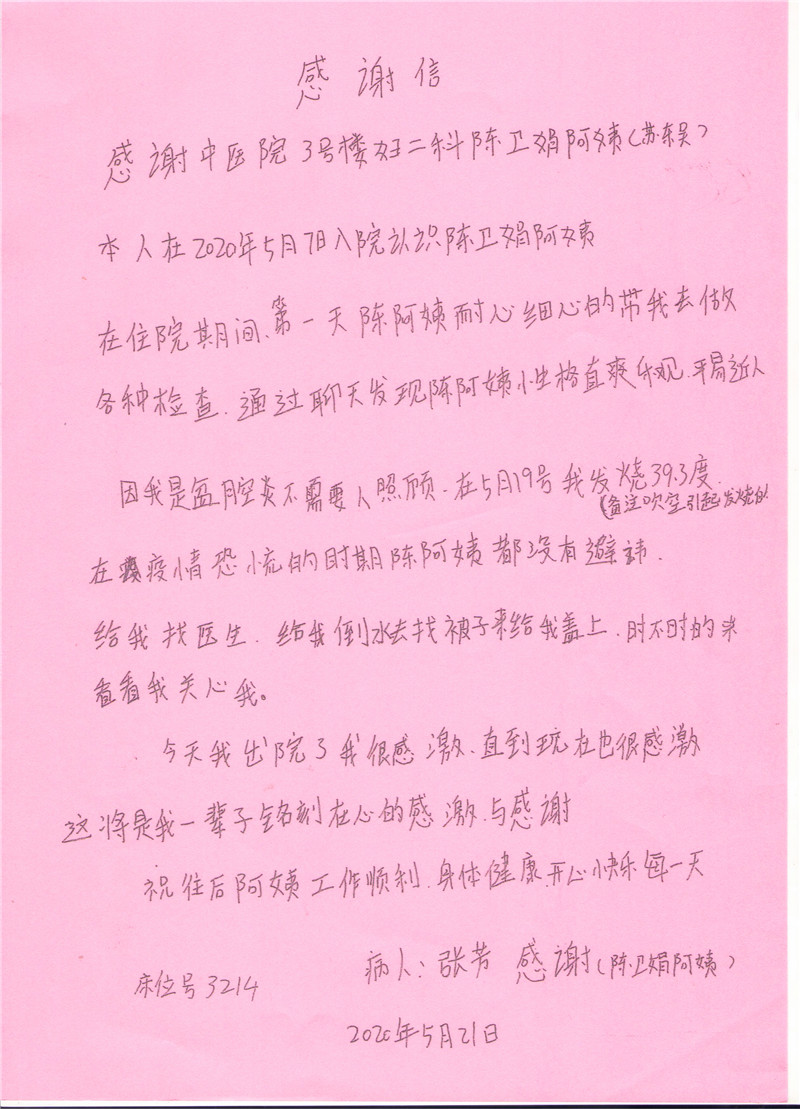 感谢信
感谢中医院3号楼妇二科陈卫娟阿姨(苏东吴)
本人在2020年5月7日入院认识陈卫娟阿姨
在住院期间、第一天陈阿姨耐心细心的带我去做
各种检查.通过聊天发现陈阿姨性格直爽乐观.平易近人
因我是盆腔炎不需要人照顾.在5月19号我发烧39.3度.
(备注吹空引起发烧的
在疫情恐慌的时期陈阿姨都没有避讳.
给我找医生.给我倒水去找被子来给我盖上.时不时的来
看看我关心我。
今天我出院了我很感激.直到现在也很感激
这将是我一辈子铭刻在心的感激.与感谢
祝往后阿姨工作顺利.身体健康.开心快乐每一天
病人:张芳 感谢(陈卫娟阿姨)
床位号3214
2020年5月21日